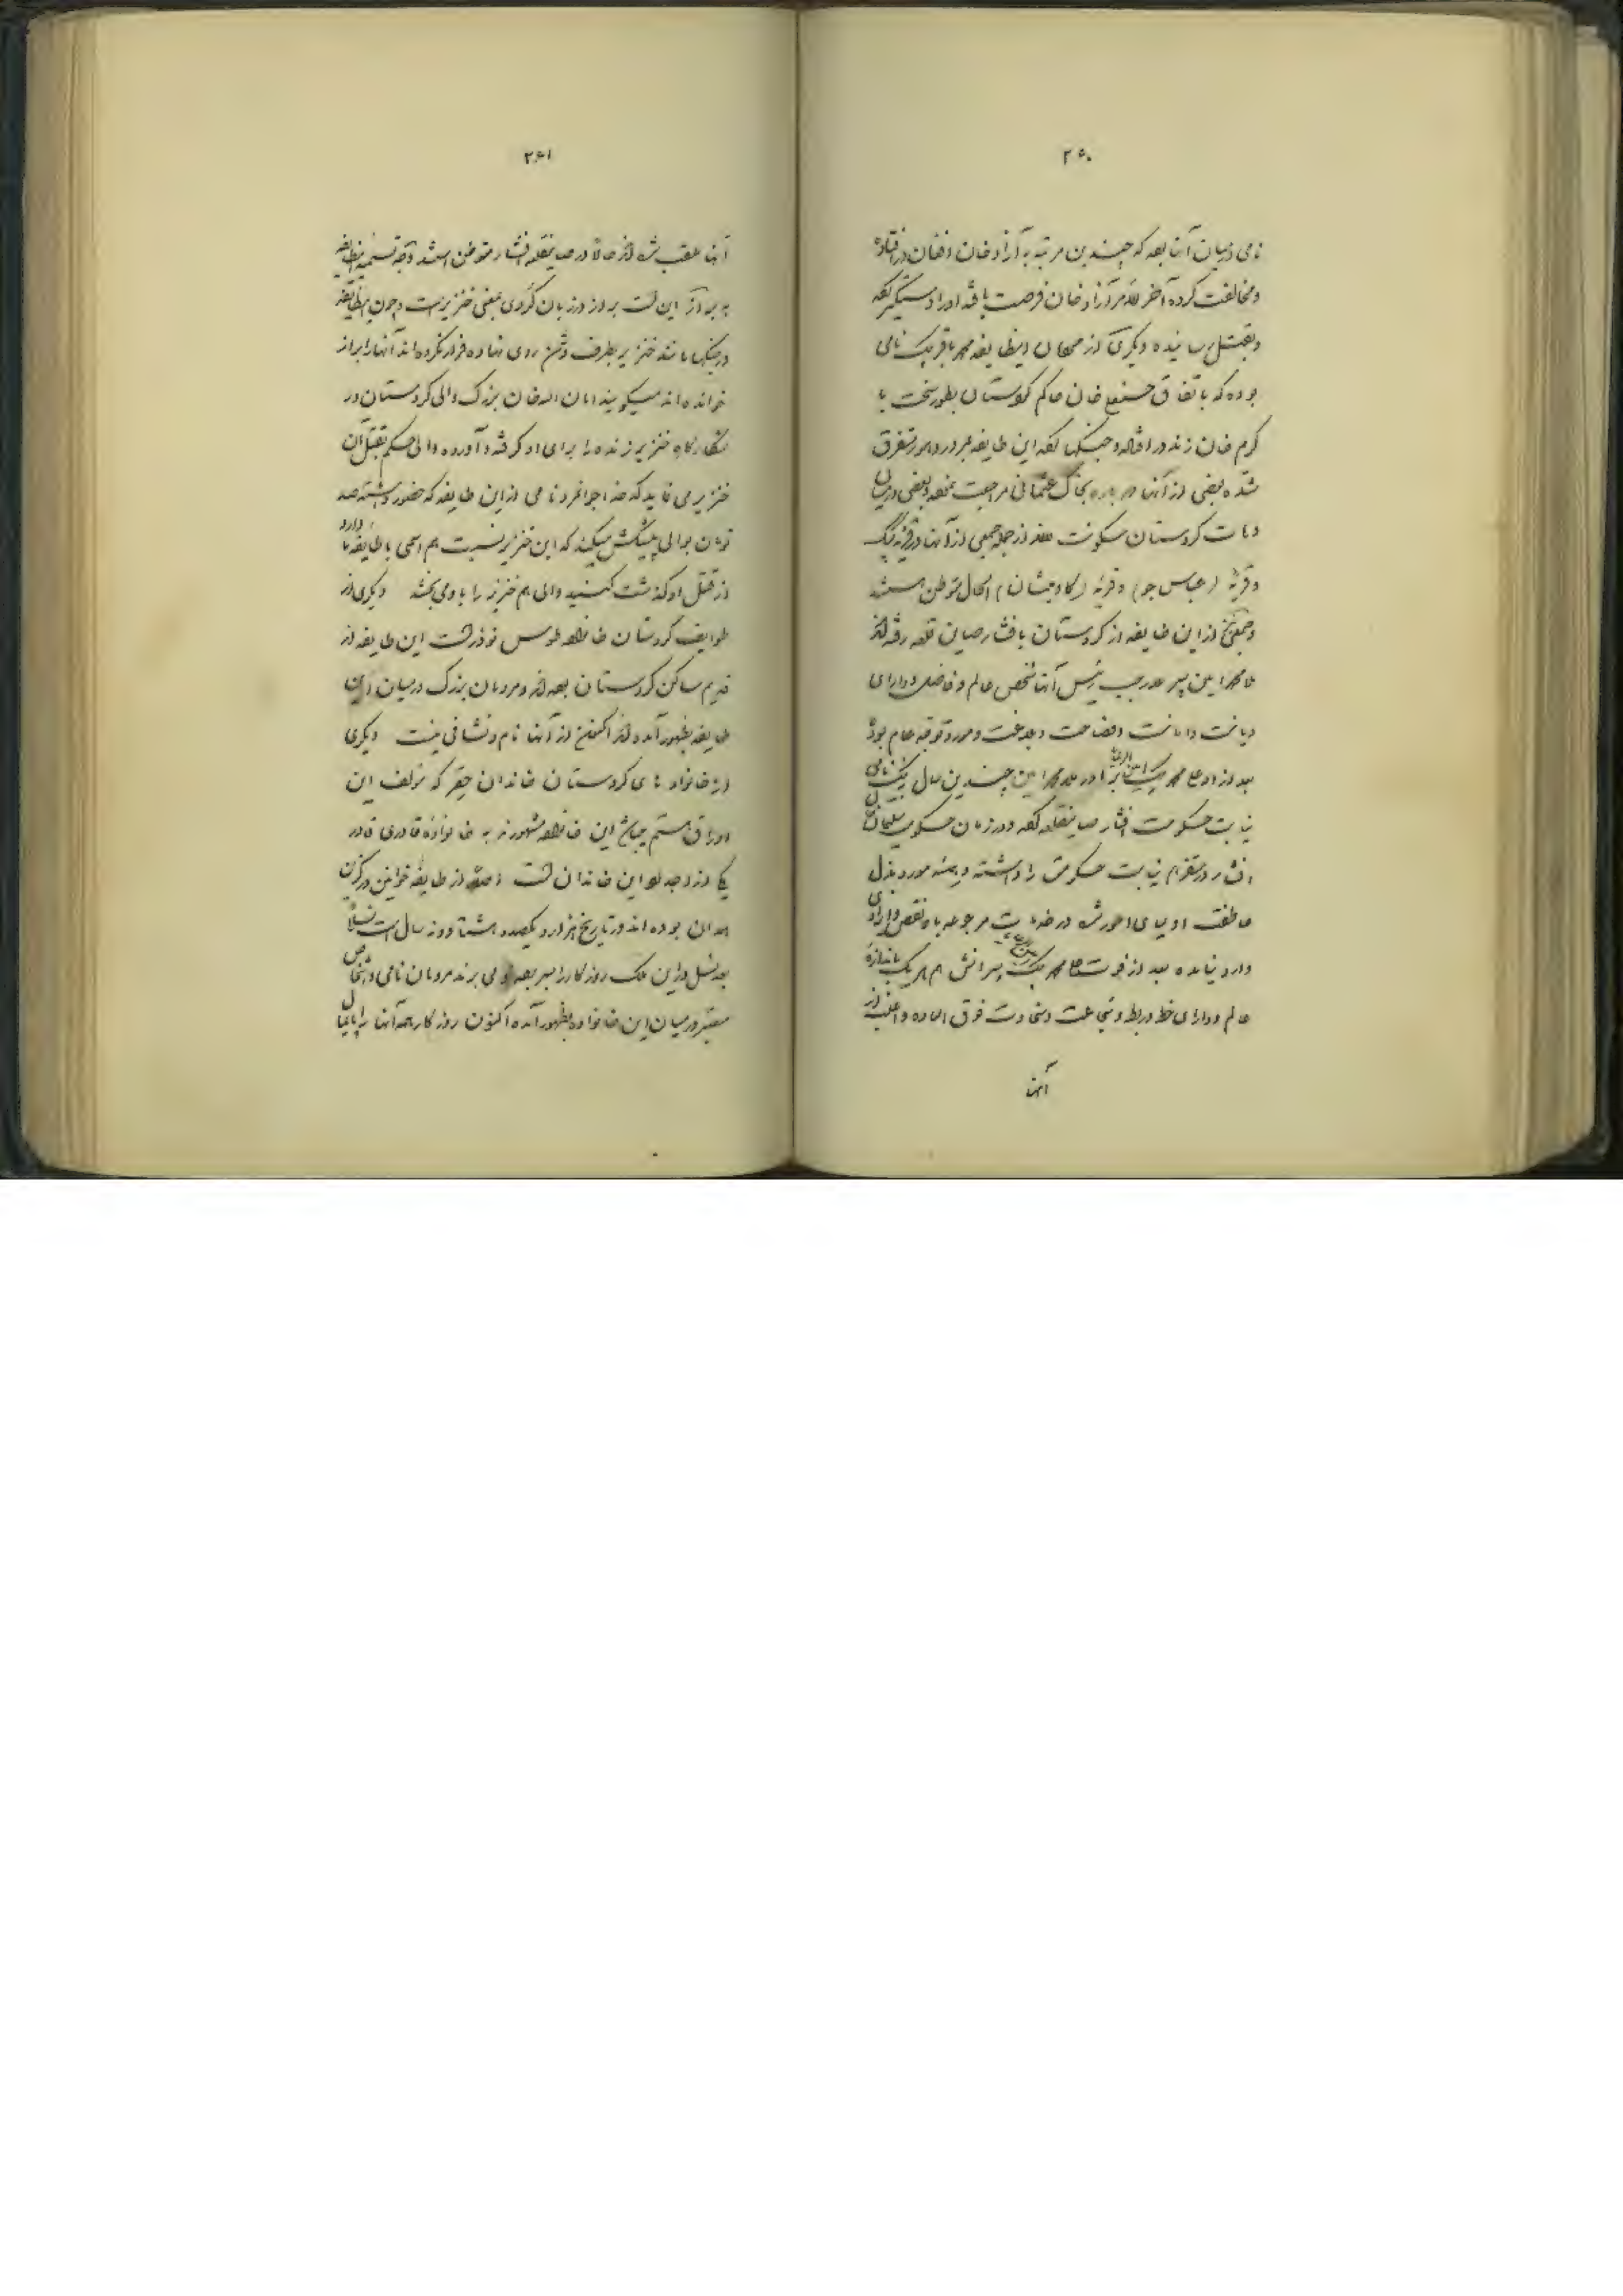 ۲۶۰
نامی در میان آنها بوده که چندین مرتبه به آزادخان افغان در افتاده
و مخالفت کرده آخر الامر آزاد خان فرصت یافته او را دستگیر کرده
و بقتل رسانیده دیگری از این طایفه محمد باقر بیک نامی
بوده که باتفاق حسنعلی خان حاکم کردستان بطور سخت با
کریم خان زند در افتاده و جنگها کرده این طایفه بمرور دهور متفرق
شده بعضی از آنها دوباره بخاک عثمانی مراجعت نموده و بعضی در میان
دهات کردستان سکونت از جمله جمعی از آنها در قریه
و قریه (عباس جو) و قریه (گاومیشان) الحال متوطن هستند
و جمعی از این طایفه از کردستان بافشار صاین قلعه رفته‌اند
ملا محمد امین پسر رئیس آنها شخص عالم و فاضل و دارای
دیانت و امانت و فصاحت و بلاغت و مورد توجه عام بوده
بعد از او علی محمد بیک برادر ملا محمد امین چندین سال به نیکنامی
نیابت حکومت افشار صاینقلعه کرده و در زمان حکومت سلیمان خان
افشار در سقز هم نیابت حکومتش را داشته و همیشه مورد بذل
عاطفت اولیای امور شده در خدمات مرجوعه باو نقص و ایرادی
وارد نیامده بعد از فوت علی محمد بیک پسرانش هم هر یک باندازه
عالم و دارای خط و ربط و شجاعت و سخاوت فوق العاده و اغلب از
آنها
۲۶۱
آنها ملقب شده‌اند حالا در صاینقلعه افشار متوطن هستند وجه تسمیه اینطایفه
به براز این است براز در زبان کردی بمعنی خنزیر است و چون اینطایفه
در جنگها مانند خنزیر بطرف دشمن روی نهاده فرار نکرده‌اند آنها را براز
خوانده‌اند میگویند امان الله خان بزرگ والی کردستان در
شکارگاه خنزیر زنده را برای او گرفته و آورده والی حکم بقتل آن
خنزیر می‌نماید که جوانمرد نامی از این طایفه که حضور داشته صد
تومان بوالی پیشکش میکند که این خنزیر نسبت هم اسمی با طایفه ما دارد
از قتل او گذشت کنید والی هم خنزیر را باو می‌بخشد دیگری از
طوایف کردستان خانواده طوس نوذر است این طایفه از
قدیم ساکن کردستان بوده‌اند و مردمان بزرگ در میان این
طایفه بظهور آمده‌اند اکنون از آنها نام و نشانی نیست دیگری
از خانواده‌های کردستان خاندان حقیر که مؤلف این
اوراق هستم میباشد این خانواده مشهورند به خانواده قادری قادر
یکی از اجداد این خاندان است اصلا از طایفه خوانین درگزین
همدان بوده‌اند و تاریخ هزار و یکصد و هشتاد و نه سال است نسلا
بعد نسل در این ملک روزگار را بسر برده و می‌برند مردمان نامی و اشخاص
معتبر در میان این خانواده بظهور آمده اکنون روزگار همه آنها را پایمال